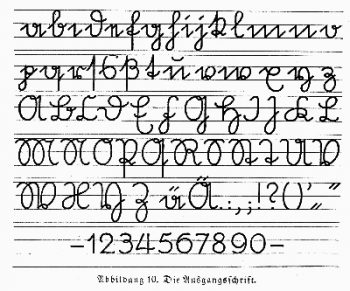 abcdefghijklmno
pqrſsßtŭvwxyz
ABCDEFGHIJKL
MNOPQRSTUV
WXYZ ü Ä.:,;!?()'„"
-1234567890-
Abbildung 10. Die Ausgangsſchrift.